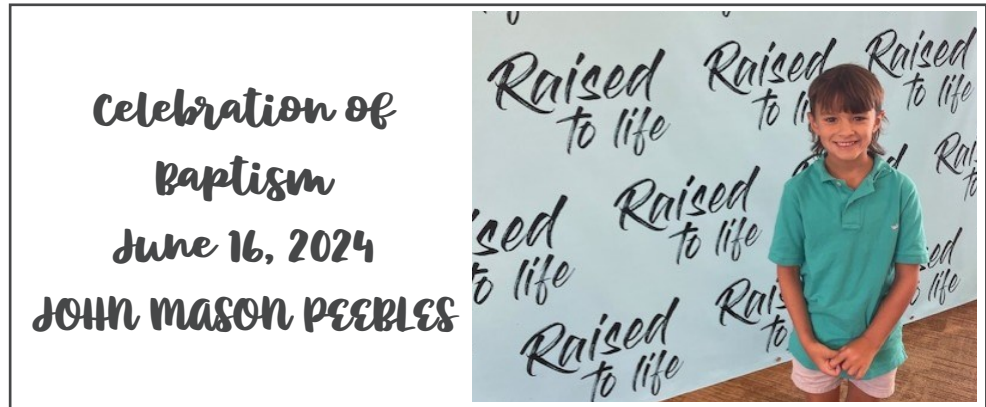 Celebration of
Baptism
June 16, 2024
JOHN MASON PEEBLES
Raised
to life
Raised
to li
Raised
to life
Rai
to
Raised
to life
sed
to life
Rais
to
sed
life
Raised
to life